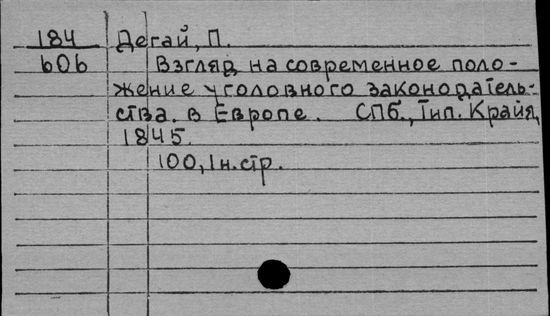 184 Дегай, П.
606 Взгляд на современное поло-
жение уголовного законодатель-
ства в Европе. СПб., Тип. Крайя,
1845.
100, 1н.стр.